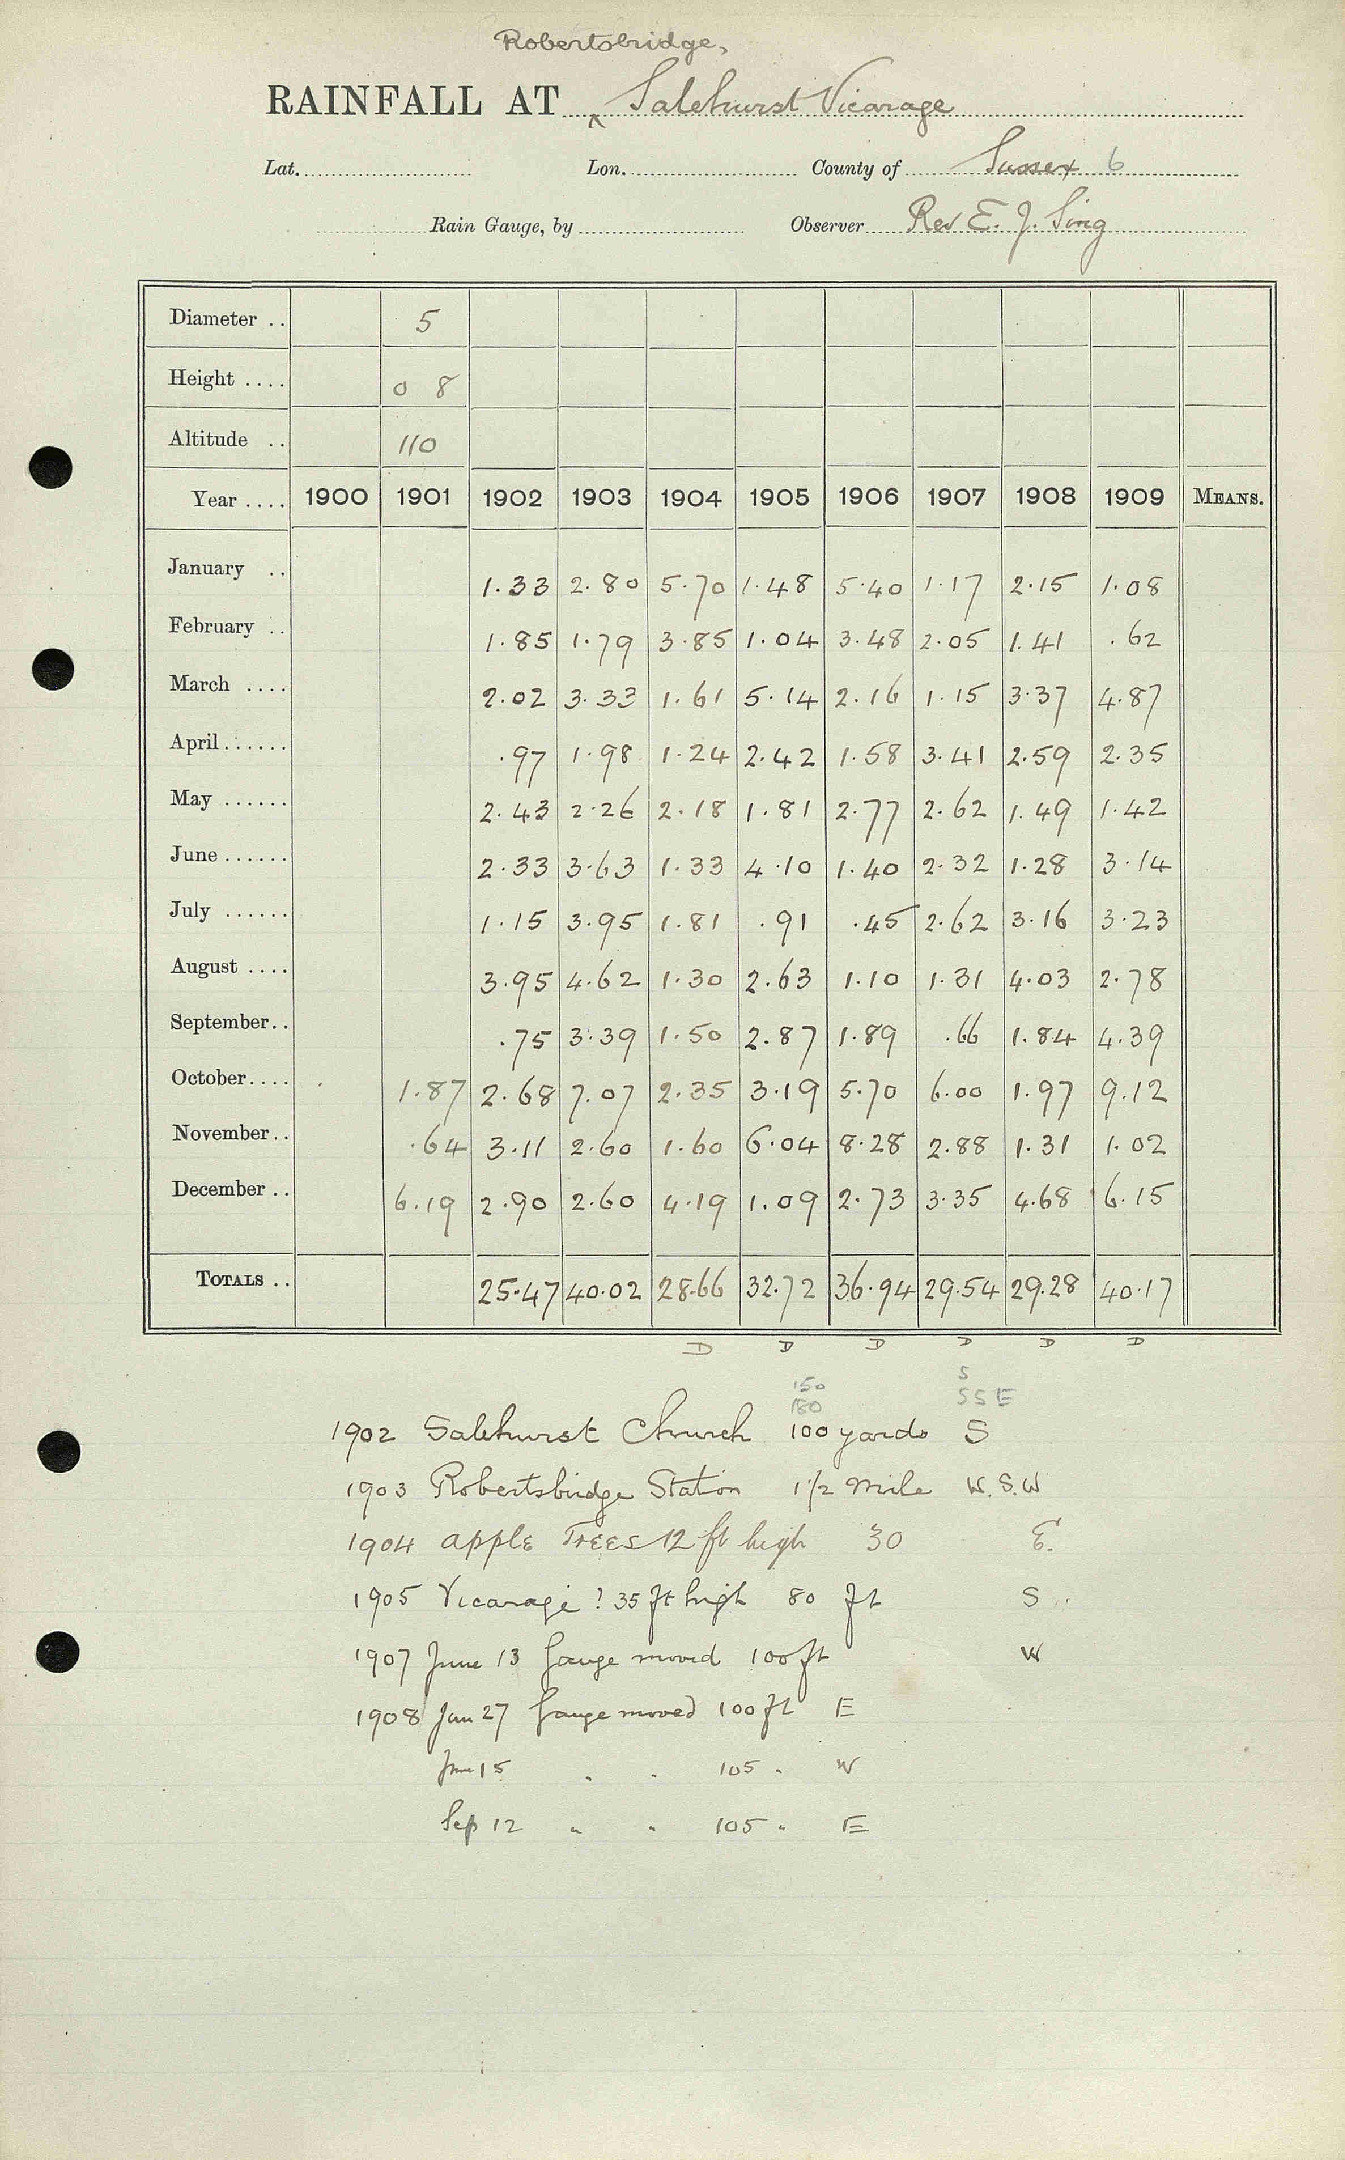 Robertsbridge,
RAINFALL AT ^ Salehurst Vicarage
Lat. Lon. County of Sussex 6
Rain Gauge, by Observer Rev E. J. Sing
Diameter .. 5
Height .... 0 8
Altitude .. 110
Year .... 1900 1901 1902 1903 1904 1905 1906 1907 1908 1909 MEANS.
January .. 1.33 2.80 5.70 1.48 5.40 1.17 2.15 1.08
February .. 1.85 1.79 3.85 1.04 3.48 2.05 1.41 .62
March .... 2.02 3.33 1.61 5.14 2.16 1.15 3.37 4.87
April...... .97 1.98 1.24 2.42 1.58 3.41 2.59 2.35
May ...... 2.43 2.26 2.18 1.81 2.77 2.62 1.49 1.42
June...... 2.33 3.63 1.33 4.10 1.40 2.32 1.28 3.14
July ...... 1.15 3.95 1.81 .91 .45 2.62 3.16 3.23
August .... 3.95 4.62 1.30 2.63 1.10 1.31 4.03 2.78
September.. .75 3.39 1.50 2.87 1.89 .66 1.84 4.39
October.... 1.87 2.68 7.07 2.35 3.19 5.70 6.00 1.97 9.12
November.. .64 3.11 2.60 1.60 6.04 8.28 2.88 1.31 1.02
December .. 6.19 2.90 2.60 4.19 1.09 2.73 3.35 4.68 6.15
TOTALS .. 25.47 40.02 28.66 32.72 36.94 29.54 29.28 40.17
D D D D D D
150 S
180 SSE
1902 Salehurst Church 100 yards S
1903 Robertsbridge Station 1 1/2 mile W.S.W
1904 apple Trees 12 ft high 30 E.
1905 Vicarage ! 35 ft high 80 ft S
1907 June 13 Gauge moved 100 ft W
1908 Jan 27 Gauge moved 100 ft E
June 15 " " 105 " W
Sep 12 " " 105 " E